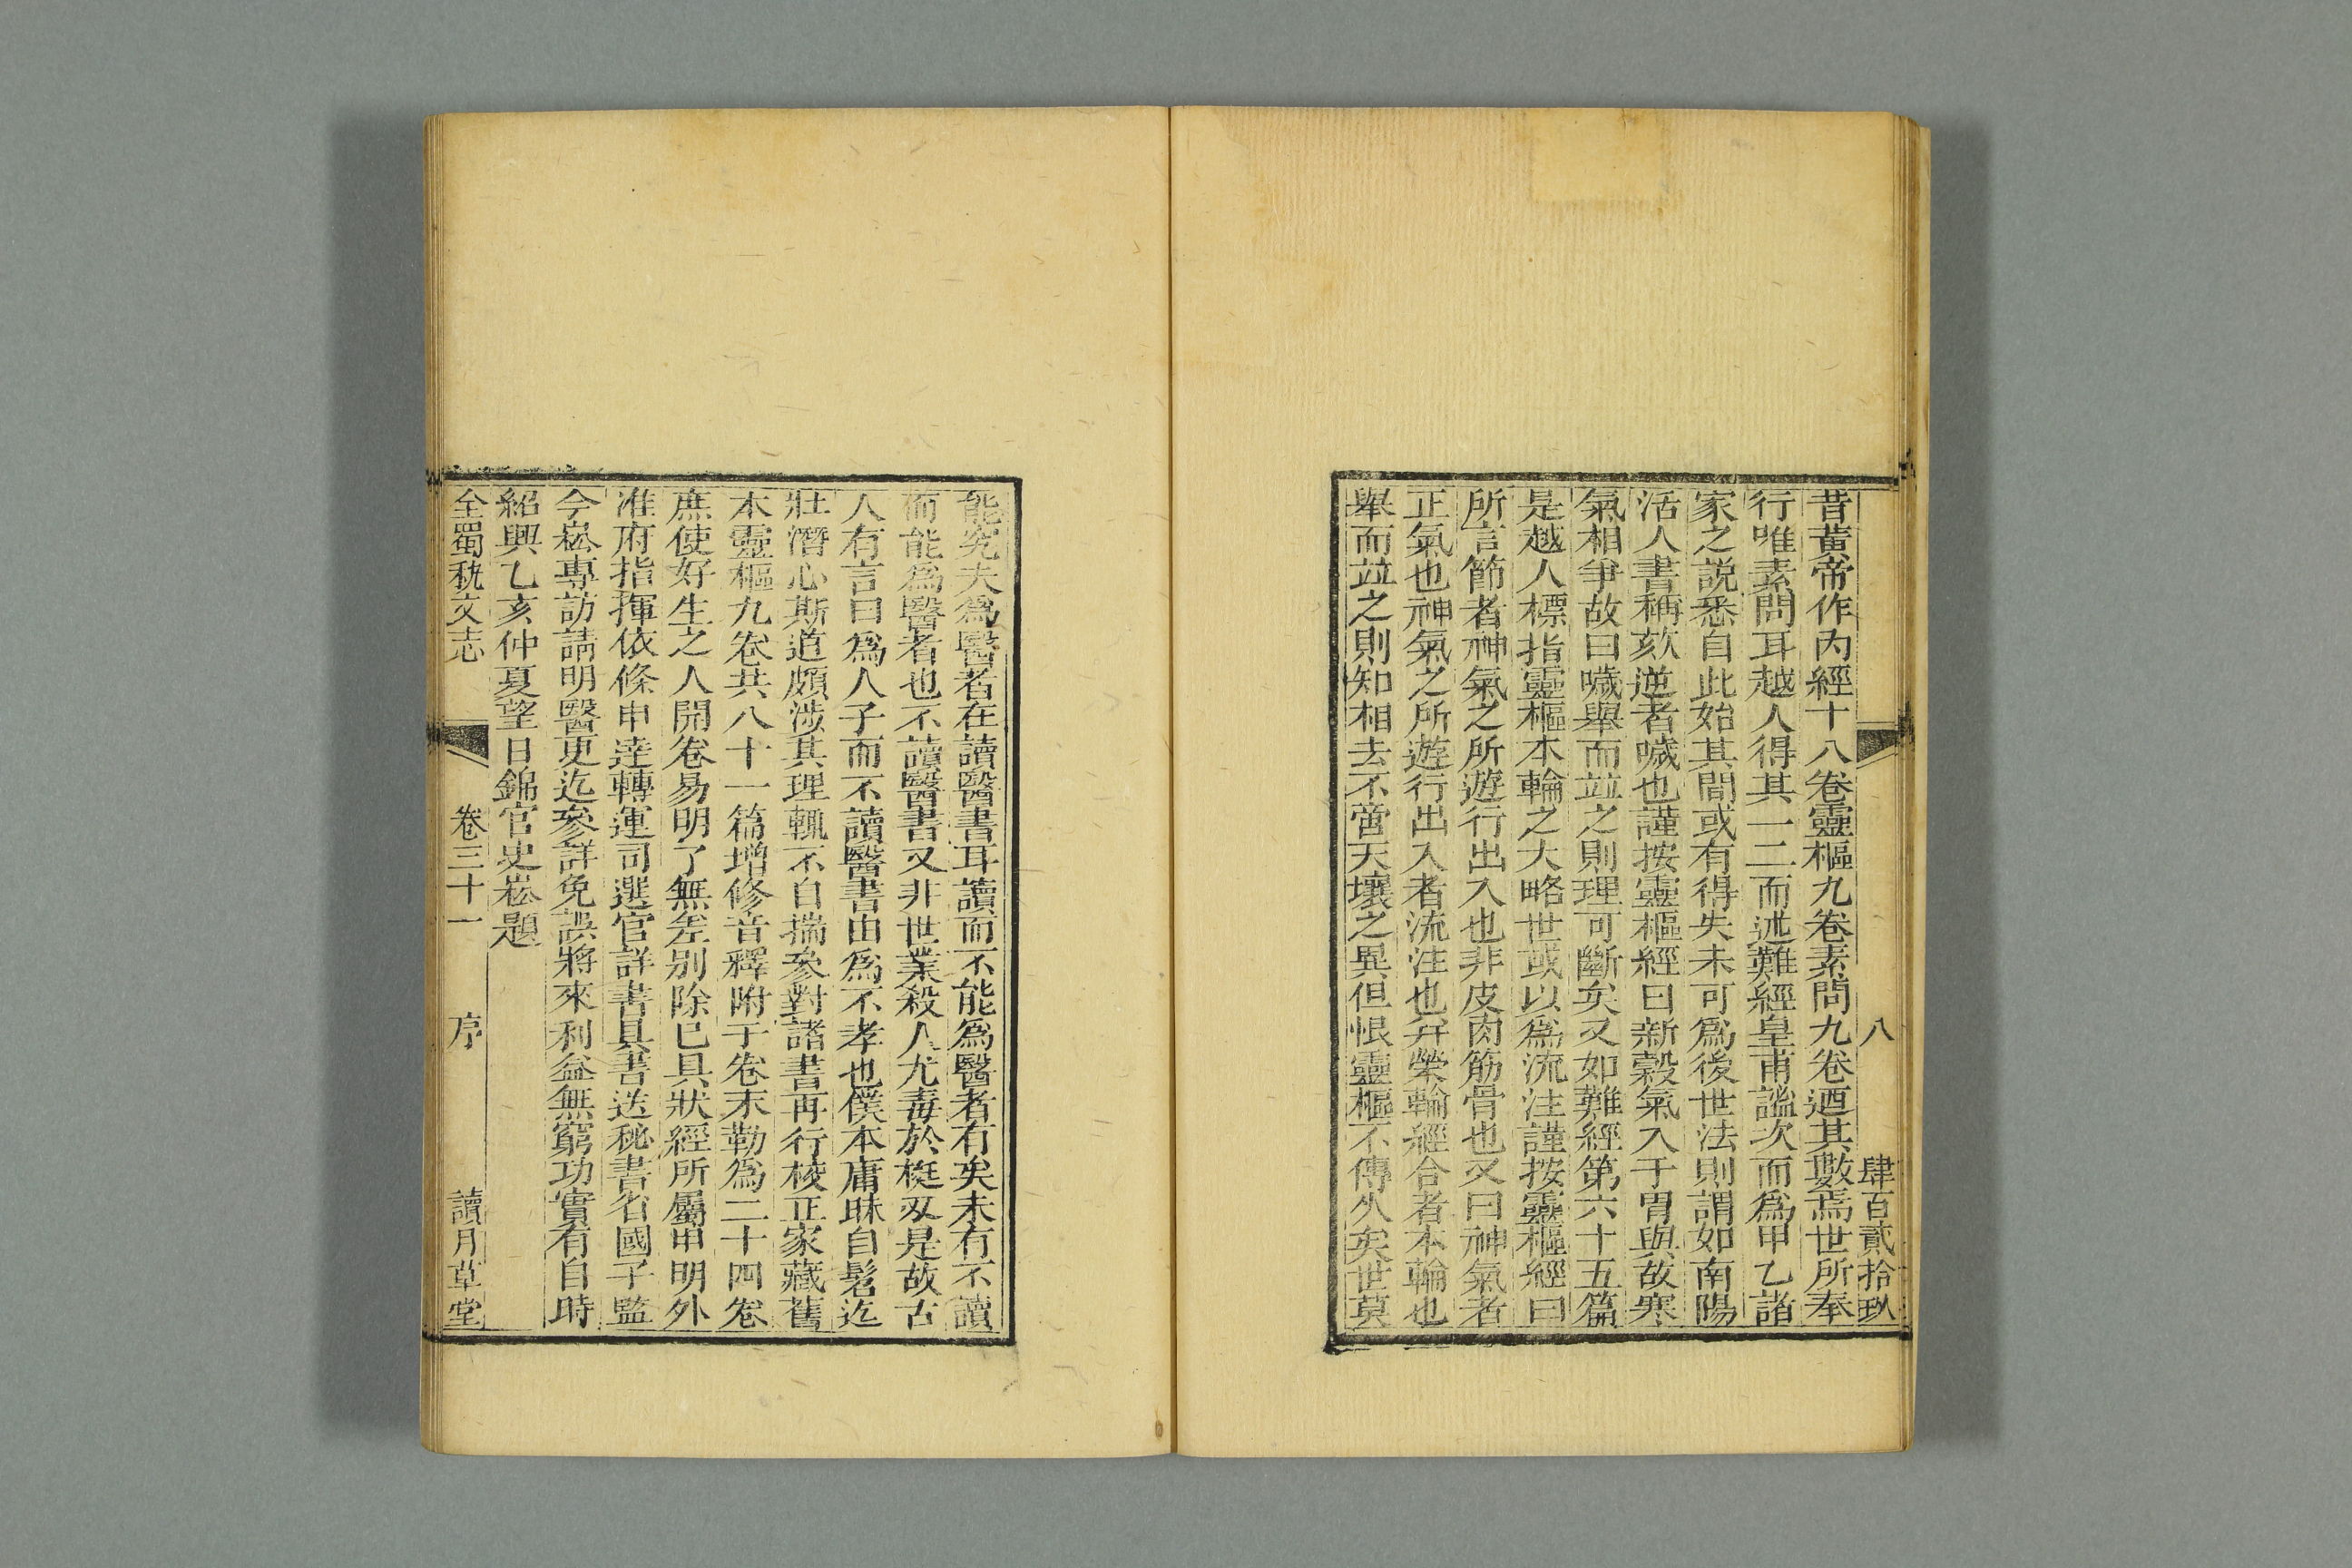 八　肆百貳拾玖
昔黃帝作內經十八卷靈樞九卷素問九卷迺其數焉世所奉
行唯素問耳越人得其一二而述難經皇甫謐次而為甲乙諸
家之說悉自此始其間或有得失未可為後世法則謂如南陽
活人書稱欬逆者噦也謹按靈樞經曰新穀氣入于胃與故寒
氣相爭故曰噦舉而竝之則理可斷矣又如難經第六十五篇
是越人標指靈樞本輸之大略世或以為流注謹按靈樞經曰
所言節者神氣之所遊行出入也非皮肉筋骨也又曰神氣者
正氣也神氣之所遊行出入者流注也井滎輸經合者本輸也
舉而竝之則知相去不啻天壤之異但恨靈樞不傳久矣世莫
能究夫為醫者在讀醫書耳讀而不能為醫者有矣未有不讀
而能為醫者也不讀醫書又非世業殺人尤毒於梃刄是故古
人有言曰為人子而不讀醫書由為不孝也僕本庸昧自髫迄
壯潛心斯道頗涉其理輒不自揣參對諸書再行校正家藏舊
本靈樞九卷共八十一篇增修音釋附于卷末勒為二十四卷
庶使好生之人開卷易明了無差別除已具狀經所屬申明外
准府指揮依條申達轉運司選官詳書具書送秘書省國子監
今崧專訪請明醫更迄參詳免誤將來利益無窮功實有自時
紹興乙亥仲夏望日錦官史崧題
全蜀秇文志　卷三十一　序　讀月草堂